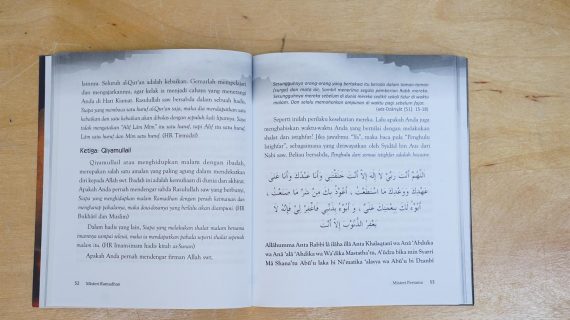 lainnya. Seluruh al-Qur'an adalah kebaikan. Gemarlah mempelajari
dan mengajarkannya, agar kelak is menjadi cahaya yang menerangi
Anda di Hari Kiamat. Rasulullah saw bersabda dalam sebuah hadis,
Siapa yang membaca satu huruf al-Qur'an saja, maka dia mendapatkan satu
kebaikan yang akan dibalas dengan sepuluh kali lipatnya. Saya
tidak mengatakan "Alif Lâm Mîm" itu satu huruf, tapi Alif itu satu huruf
Lâm satu huruf dan Mîm satu huruf. (HR Tirmidzi)
Ketiga: Qiyamullail
Qiyamullail atau menghidupkan malam dengan ibadah,
merupakan salah satu amalan yang paling agung dalam mendekatkan
diri kepada Allah swt. Ibadah ini adalah kemuliaan di dunia dan akhirat.
Apakah Anda pernah mendengar sabda Rasulullah saw yang berbunyi,
Siapa yang menghidupkan malam Ramadhan dengan penuh keimanan dan
mengharap pahalanya, maka dosa-dosanya yang berlalu akan diampuni. (HR
Bukhâri dan Muslim)
Dalam hadis yang lain, Siapa yang melakukan shalat malam bersama
imamnya sampai selesai, maka ia mendapatkan pahala seperti shalat sepenuh
malam itu. (HR Imam-imam hadis kitab as-Sunan)
Apakah Anda pernah mendengar firman Allah swt,
52 Misteri Ramadhan
Sesungguhnya orang-orang yang bertakwa itu berada dalam taman-taman
(surga) dan mata air. Sambil menerima segala pemberian Rabb mereka.
Sesungguhnya mereka sebelum di dunia mereka sedikit sekali tidur di waktu
malam. Dan selalu memohonkan ampunan di waktu pagi sebelum fajar.
(adz-Dzâriyât [51]: 15-18)
Seperti inilah perilaku keseharian mereka. Lalu apakah Anda juga
menghabiskan waktu-waktu Anda yang bernilai dengan melakukan
shalat dan istighfar? Jika jawabmu "Ya", maka baca pula "Penghulu
Istighfar", sebagaimana yang diriwayatkan oleh Syidad bin Aus dari
Nabi saw. Beliau bersabda, Penghulu dari semua istighfar adalah ucapan
اللَّهُمَّ أَنْتَ رَبِّيْ لاَ إِلَهَ إِلاَّ أَنْتَ خَلَقْتَنِيْ وَأَنَا عَبْدُكَ وَأَنَا عَلَى
عَهْدِكَ وَوَعْدِكَ مَا اسْتَطَعْتُ ، أَعُوْذُ بِكَ مِنْ شَرِّ مَا صَنَعْتُ ،
أَبُوْءُ لَكَ بِنِعْمَتِكَ عَلَيَّ ، وَ أَبُوْءُ بِذَنْبِيْ فَاغْفِرْ لِيْ فَإِنَّهُ لاَ
يَغْفِرُ الذُّنُوْبَ إِلاَّ أَنْتَ
Allâhumma Anta Rabbî lâ ilâha illâ Anta Khalaqtanî wa Anâ 'Abduka
wa Anâ 'alâ 'Ahdika wa Wa'dika Mastatha'tu, A'ûdzu bika min Syarri
Mâ Shana'tu Abû'u laka bi Ni'matika 'alayya wa Abû'u bi Dzanbî
Misteri Pertama 53